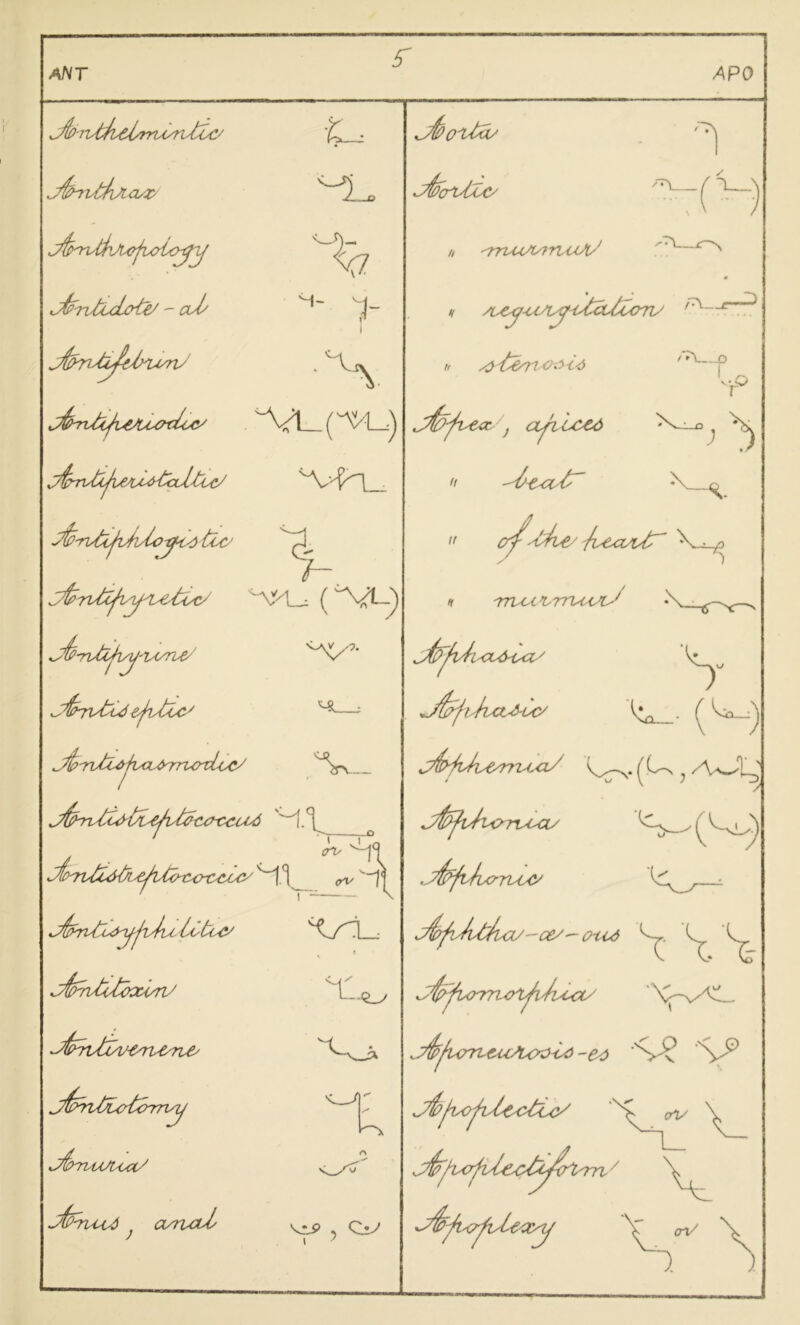 5
ANT
APO
Anthelmintic
Anthrax
Anthropology
Antidote - al
Antifebrin
Antiperiodic ( )
Antiperistaltic
Antiphlogistic
Antipyretic ( )
Antipyrine
Antiseptic
Antispasmodic
Antistreptococcus
or
Antistreptococcic or
Antisyphilitic
Antitoxin
Antivenene
Antrotomy
Anuria
Anus, anal ,
Aorta
Aortic ( )
" murmur
" regurgitation
" stenosis
Apex, apices ,
" beat
" of the heart
" murmur
Aphasia
Aphasic ( )
Aphemia ( , )
Aphonia ( )
Aphonic
Aphtha-æ-ous
Apomorphia
Aponeurosis-es
Apoplectic or
Apoplectiform
Apoplexy or